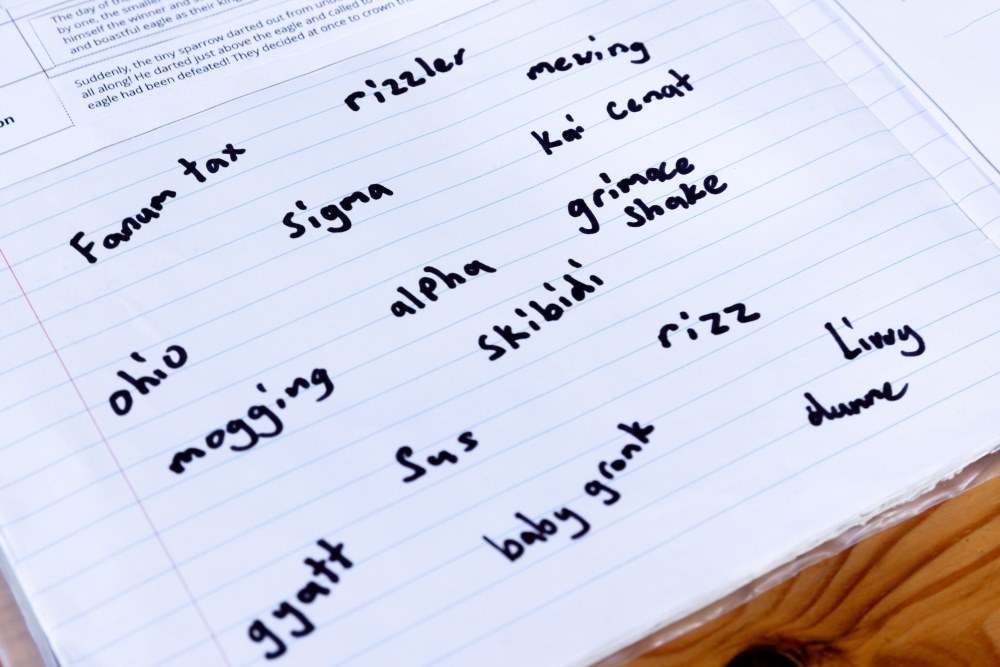 The day of
by one, the smaller
himself the winner and
and boastful eagle as their king
Suddenly, the tiny sparrow darted out from
all along! He darted just above the eagle and called to
eagle had been defeated! They decided at once to crown
on
rizzler
mewing
Kai cenat
Fanum tax
sigma
grimace
shake
alpha
skibidi
rizz
Livvy
dunne
ohio
mogging
Sus
baby gronk
gyatt